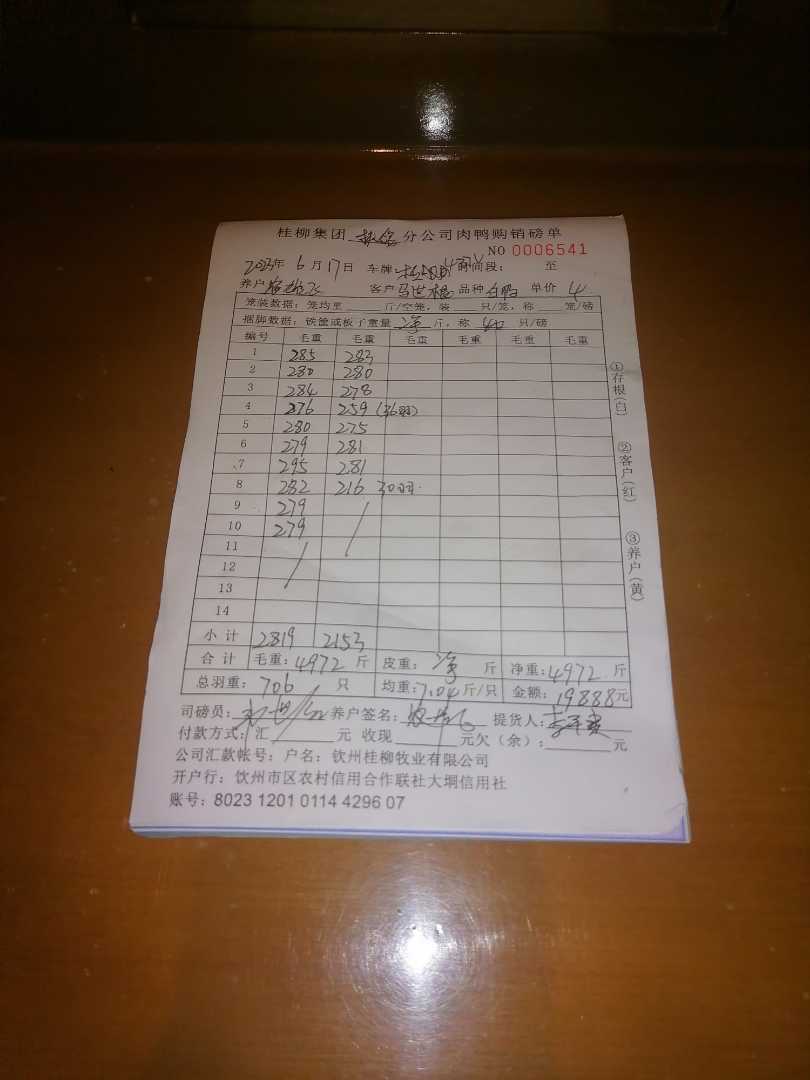 桂柳集团 分公司肉鸭购销磅单
NO 0006541
2023年 6月17日 车牌 时间段： 至
养户 客户 马世根 品种 白鸭 单价 4
笼装数据：笼均重 斤/空笼，装 只/笼，称 笼/磅
捆脚数据：铁筐或板子重量 净 斤，称 40 只/磅
编号 毛重 毛重 毛重 毛重 毛重 毛重
1 285 283
2 280 280
3 284 278
4 276 259 (36羽)
5 280 275
6 279 281
7 295 281
8 282 216 30羽
9 279
10 279
11
12
13
14
小计 2819 2153
合计 毛重：4972 斤 皮重：净 斤 净重：4972 斤
总羽重：706 只 均重：7.04 斤/只 金额：19888元
司磅员： 养户签名： 提货人：
付款方式：汇 元 收现 元欠（余）： 元
公司汇款帐号：户名：钦州桂柳牧业有限公司
开户行：钦州市区农村信用合作联社大垌信用社
账号：8023 1201 0114 4296 07
①存根(白)
②客户(红)
③养户(黄)